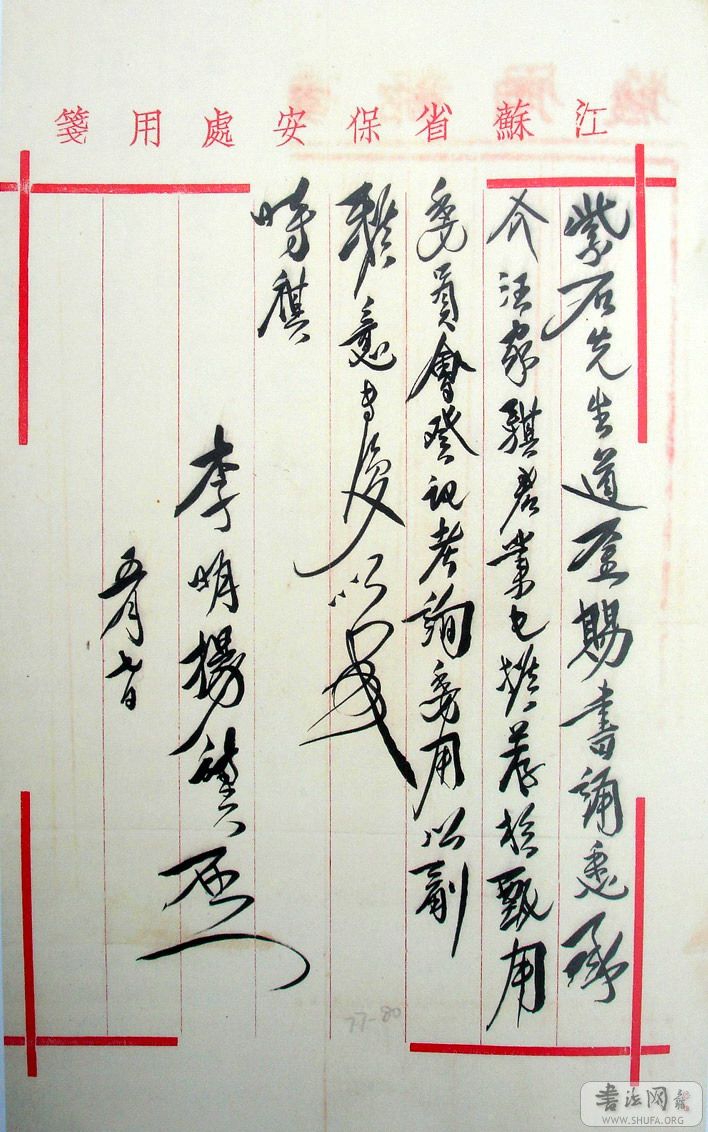 江蘇省保安處用箋
紫石先生道鑒賜書誦悉承
介汪家騏君業已撥荐於甄用
委員會登記考詢委用以副
雅意專復以
時祺
李明揚
五月七日
书法网
WWW.SHUFA.ORG
77-80